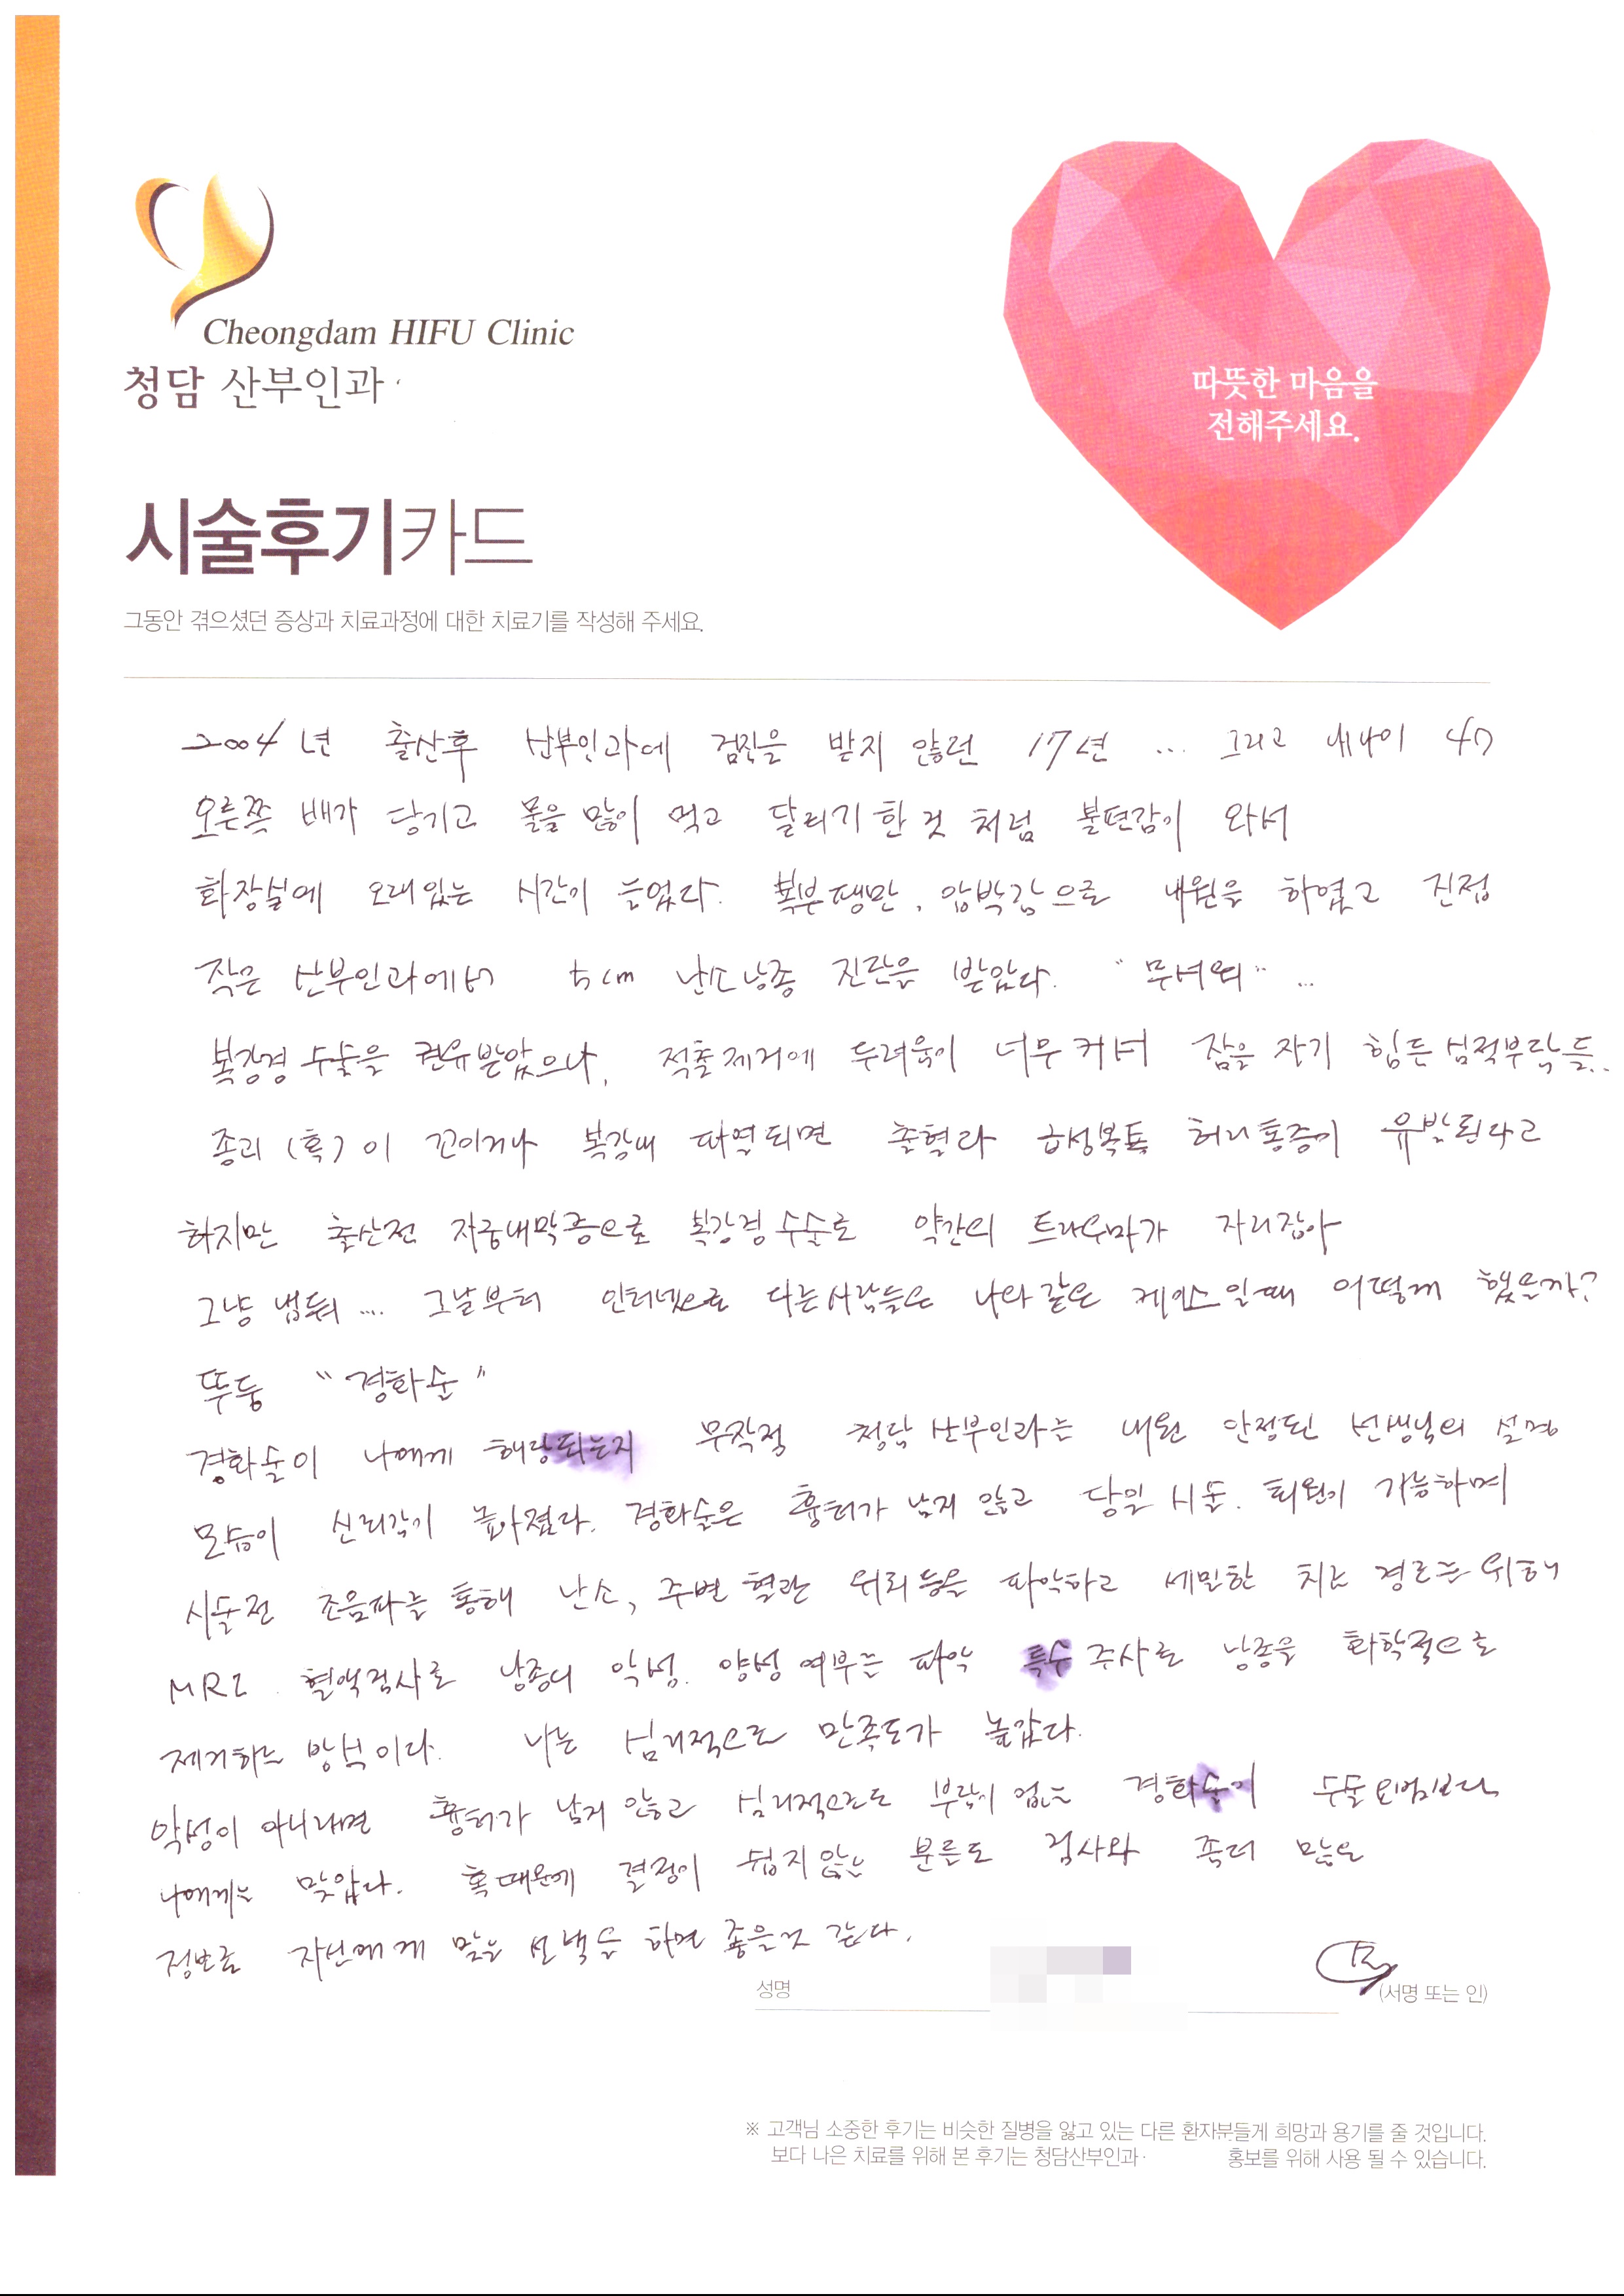 Cheongdam HIFU Clinic
청담 산부인과
따뜻한 마음을
전해주세요.
시술후기카드
그동안 겪으셨던 증상과 치료과정에 대한 치료기를 작성해 주세요.
2004년 출산후 산부인과에 검진을 받지 않던 17년 ... 그리고 내나이 47
오른쪽 배가 당기고 물을 많이 먹고 달리기 한 것 처럼 불편감이 와서
화장실에 오래있는 시간이 늘었다. 복부팽만, 압박감으로 내원을 하였고 진정
작은 산부인과에서 5cm 난소낭종 진단을 받았다. "무서워" ...
복강경 수술을 권유받았으나, 적출제거에 두려움이 너무 커서 잠을 자기 힘든 심적부담들..
종괴 (혹) 이 꼬이거나 복강내 파열되면 출혈과 급성복통 허리통증이 유발된다고
하지만 출산전 자궁내막증으로 복강경 수술로 약간의 트라우마가 자리잡아
그냥 냅둬 ... 그날부터 인터넷으로 다른사람들은 나와 같은 케이스일때 어떻게 했을까?
뚜둥 "경화술"
경화술이 나에게 해당되는지 무작정 청담 산부인과는 내원 안정된 선생님의 설명
모습이 신뢰감이 높아졌다. 경화술은 흉터가 남지 않고 당일 시술. 퇴원이 가능하며
시술전 초음파를 통해 난소, 주변 혈관 위치 등을 파악하고 세밀한 치료 경로를 위해
MRI 혈액검사로 낭종의 악성. 양성 여부를 파악 특수 주사로 낭종을 화학적으로
제거하는 방식이다. 나는 심리적으로 만족도가 높았다.
악성이 아니라면 흉터가 남지 않고 심리적으로도 부담이 없는 경화술이 수술요법보다
나에게는 맞았다. 혹 때문에 결정이 쉽지 않는 분들도 검사와 좀더 많은
정보로 자신에게 맞을 선택을 하면 좋을것 같다.
성명 (서명 또는 인)
※ 고객님 소중한 후기는 비슷한 질병을 앓고 있는 다른 환자분들게 희망과 용기를 줄 것입니다.
보다 나은 치료를 위해 본 후기는 청담산부인과 홍보를 위해 사용 될 수 있습니다.